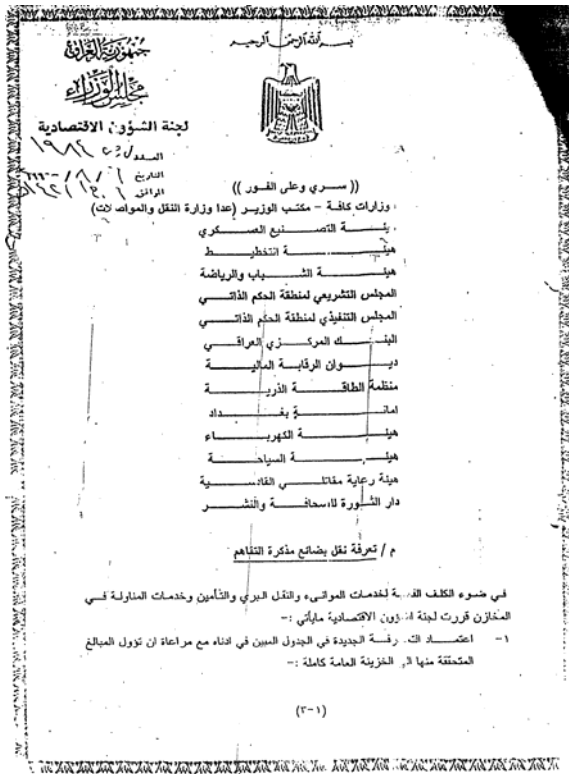 بسم الله الرحمن الرحيم
جمهورية العراق
مجلس الوزراء
لجنة الشؤون الاقتصادية
العدد
التاريخ
الموافق
(( سري وعلى الفور ))
وزارات كافة - مكتب الوزير (عدا وزارة النقل والمواصلات)
يئة التصنيع العسكري
هيئة التخطيط
هيئة الشباب والرياضة
المجلس التشريعي لمنطقة الحكم الذاتي
المجلس التنفيذي لمنطقة الحكم الذاتي
البنك المركزي العراقي
ديوان الرقابة المالية
منظمة الطاقة الذرية
امانة بغداد
هيئة الكهرباء
هيئة السياحة
هيئة رعاية مقاتلي القادسية
دار الثورة للصحافة والنشر
م / تعرفة نقل بضائع مذكرة التفاهم
في ضوء الكلف لخدمات الموانيء والنقل البري والتأمين وخدمات المناولة في
المخازن قررت لجنة الشؤون الاقتصادية مايأتي :-
١- اعتماد التعرفة الجديدة في الجدول المبين في ادناه مع مراعاة ان تؤول المبالغ
المتحققة منها الى الخزينة العامة كاملة :-
(١-٣)